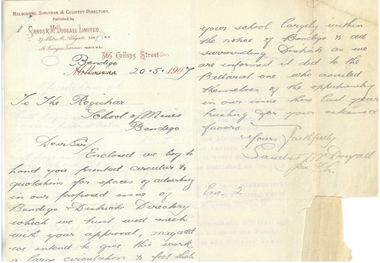 MELBOURNE, SUBURBAN, & COUNTRY DIRECTORY,
Published by
SANDS & McDOUGALL LIMITED,
365 Collins Street
Bendigo
Melbourne 20-5-1907
To The Registrar
School of Mines
Bendigo
Dear Sir/
Enclosed we beg to
hand you printed circular &
quotation for spaces of advertising
in our proposed issue of
Bendigo & Districts Directory
which we trust will meet
with your approval,
we intend to give this work
a large circulation & feel that
your school largely within
the notice of Bendigo & all
surrounding Districts as we
are informed it did to the
Ballarat one who availed
themselves of the opportunity
in our issue there last year
trusting for your esteemed
favors
Yours Faithfully
Sands & McDougall